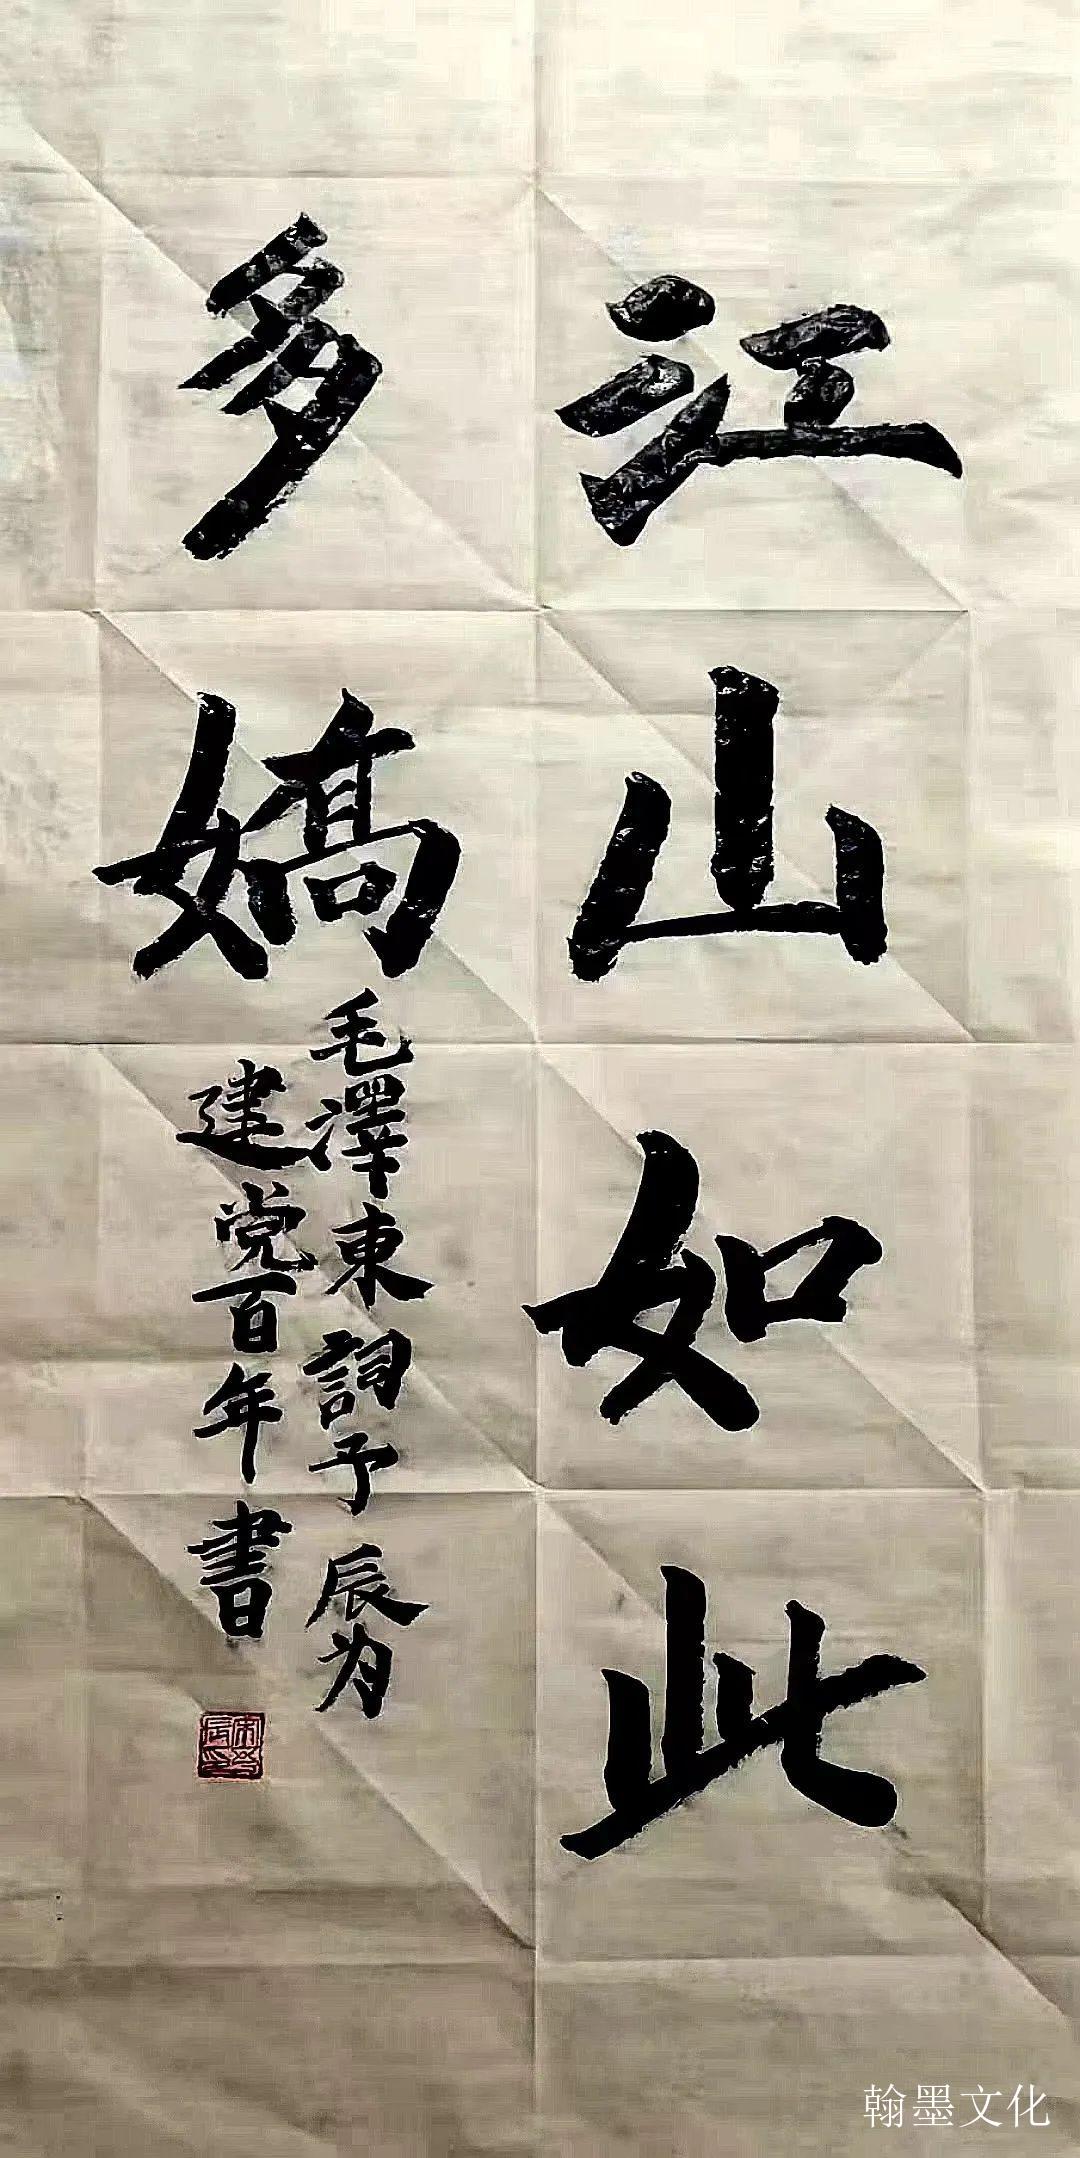 江山如此
多嬌
毛澤東詞予辰为
建党百年書
翰墨文化